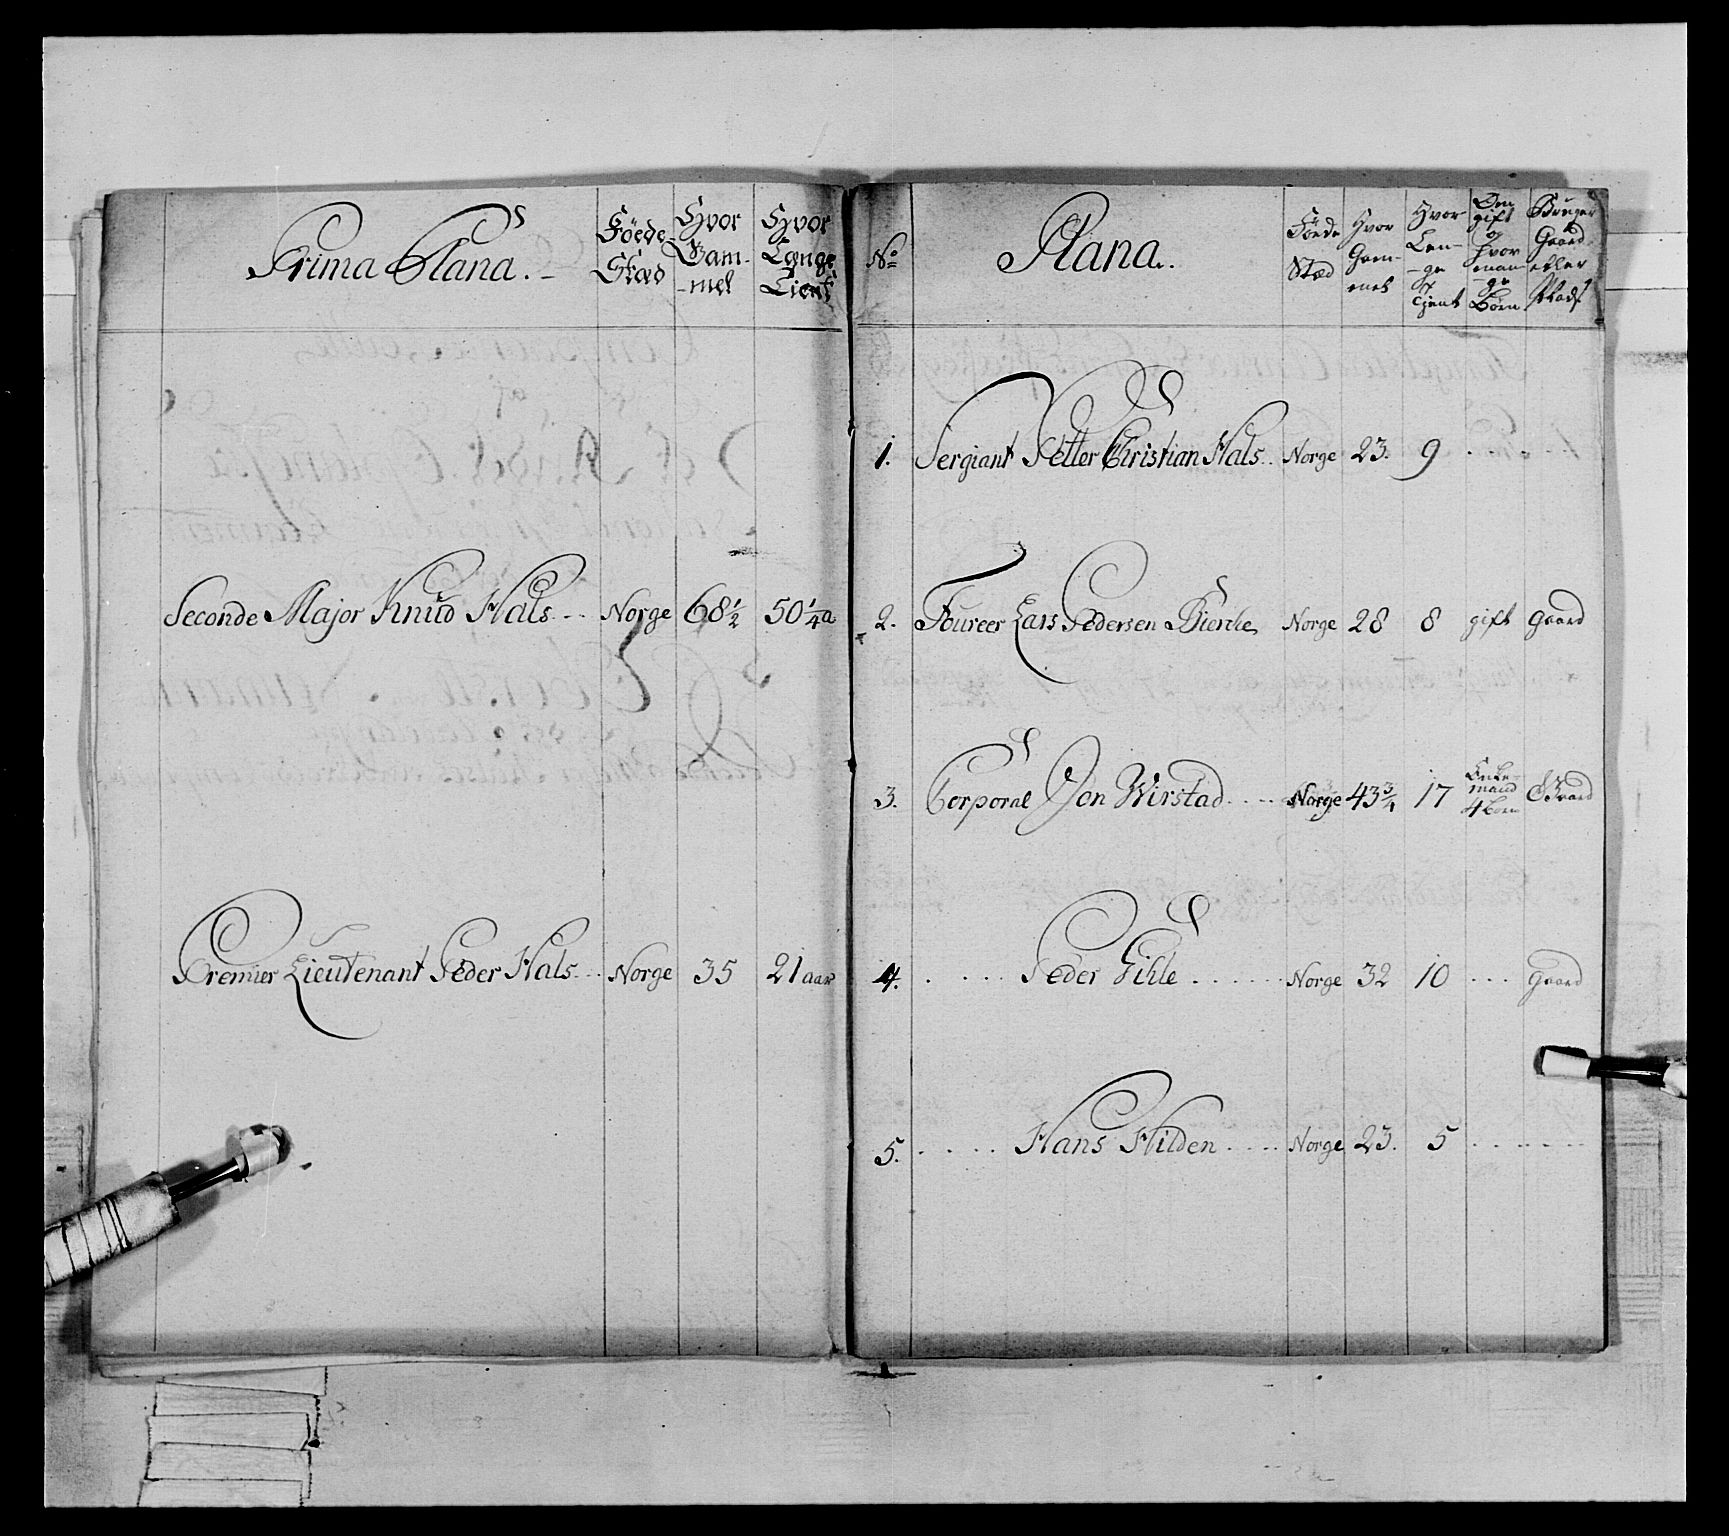 Prima Plana.
Føede Stæd
Hvor Gam-mel
Hvor Længe Tient
Seconde Major Knud Hals Norge 68 1/2 50 1/4 a
Premier Lieutenant Peder Hals Norge 35 21 aar
No
Plana.
Føede Stæd
Hvor Gam-mel
Hvor Len-ge tjent
Om gift og hvor man-ge Børn
Bruger Gaard eller Plads
1. Sergiant Petter Christian Hals Norge 23. 9
2. Foureer Lars Pedersen Norge 28 8 gift Gaard
3. Corporal Jon Wirstad Norge 43 3/4 17 Enke-mand 4 Børn Gaard
4. Peder Norge 32 10 Gaard
5. Hans Hilden Norge 23. 5